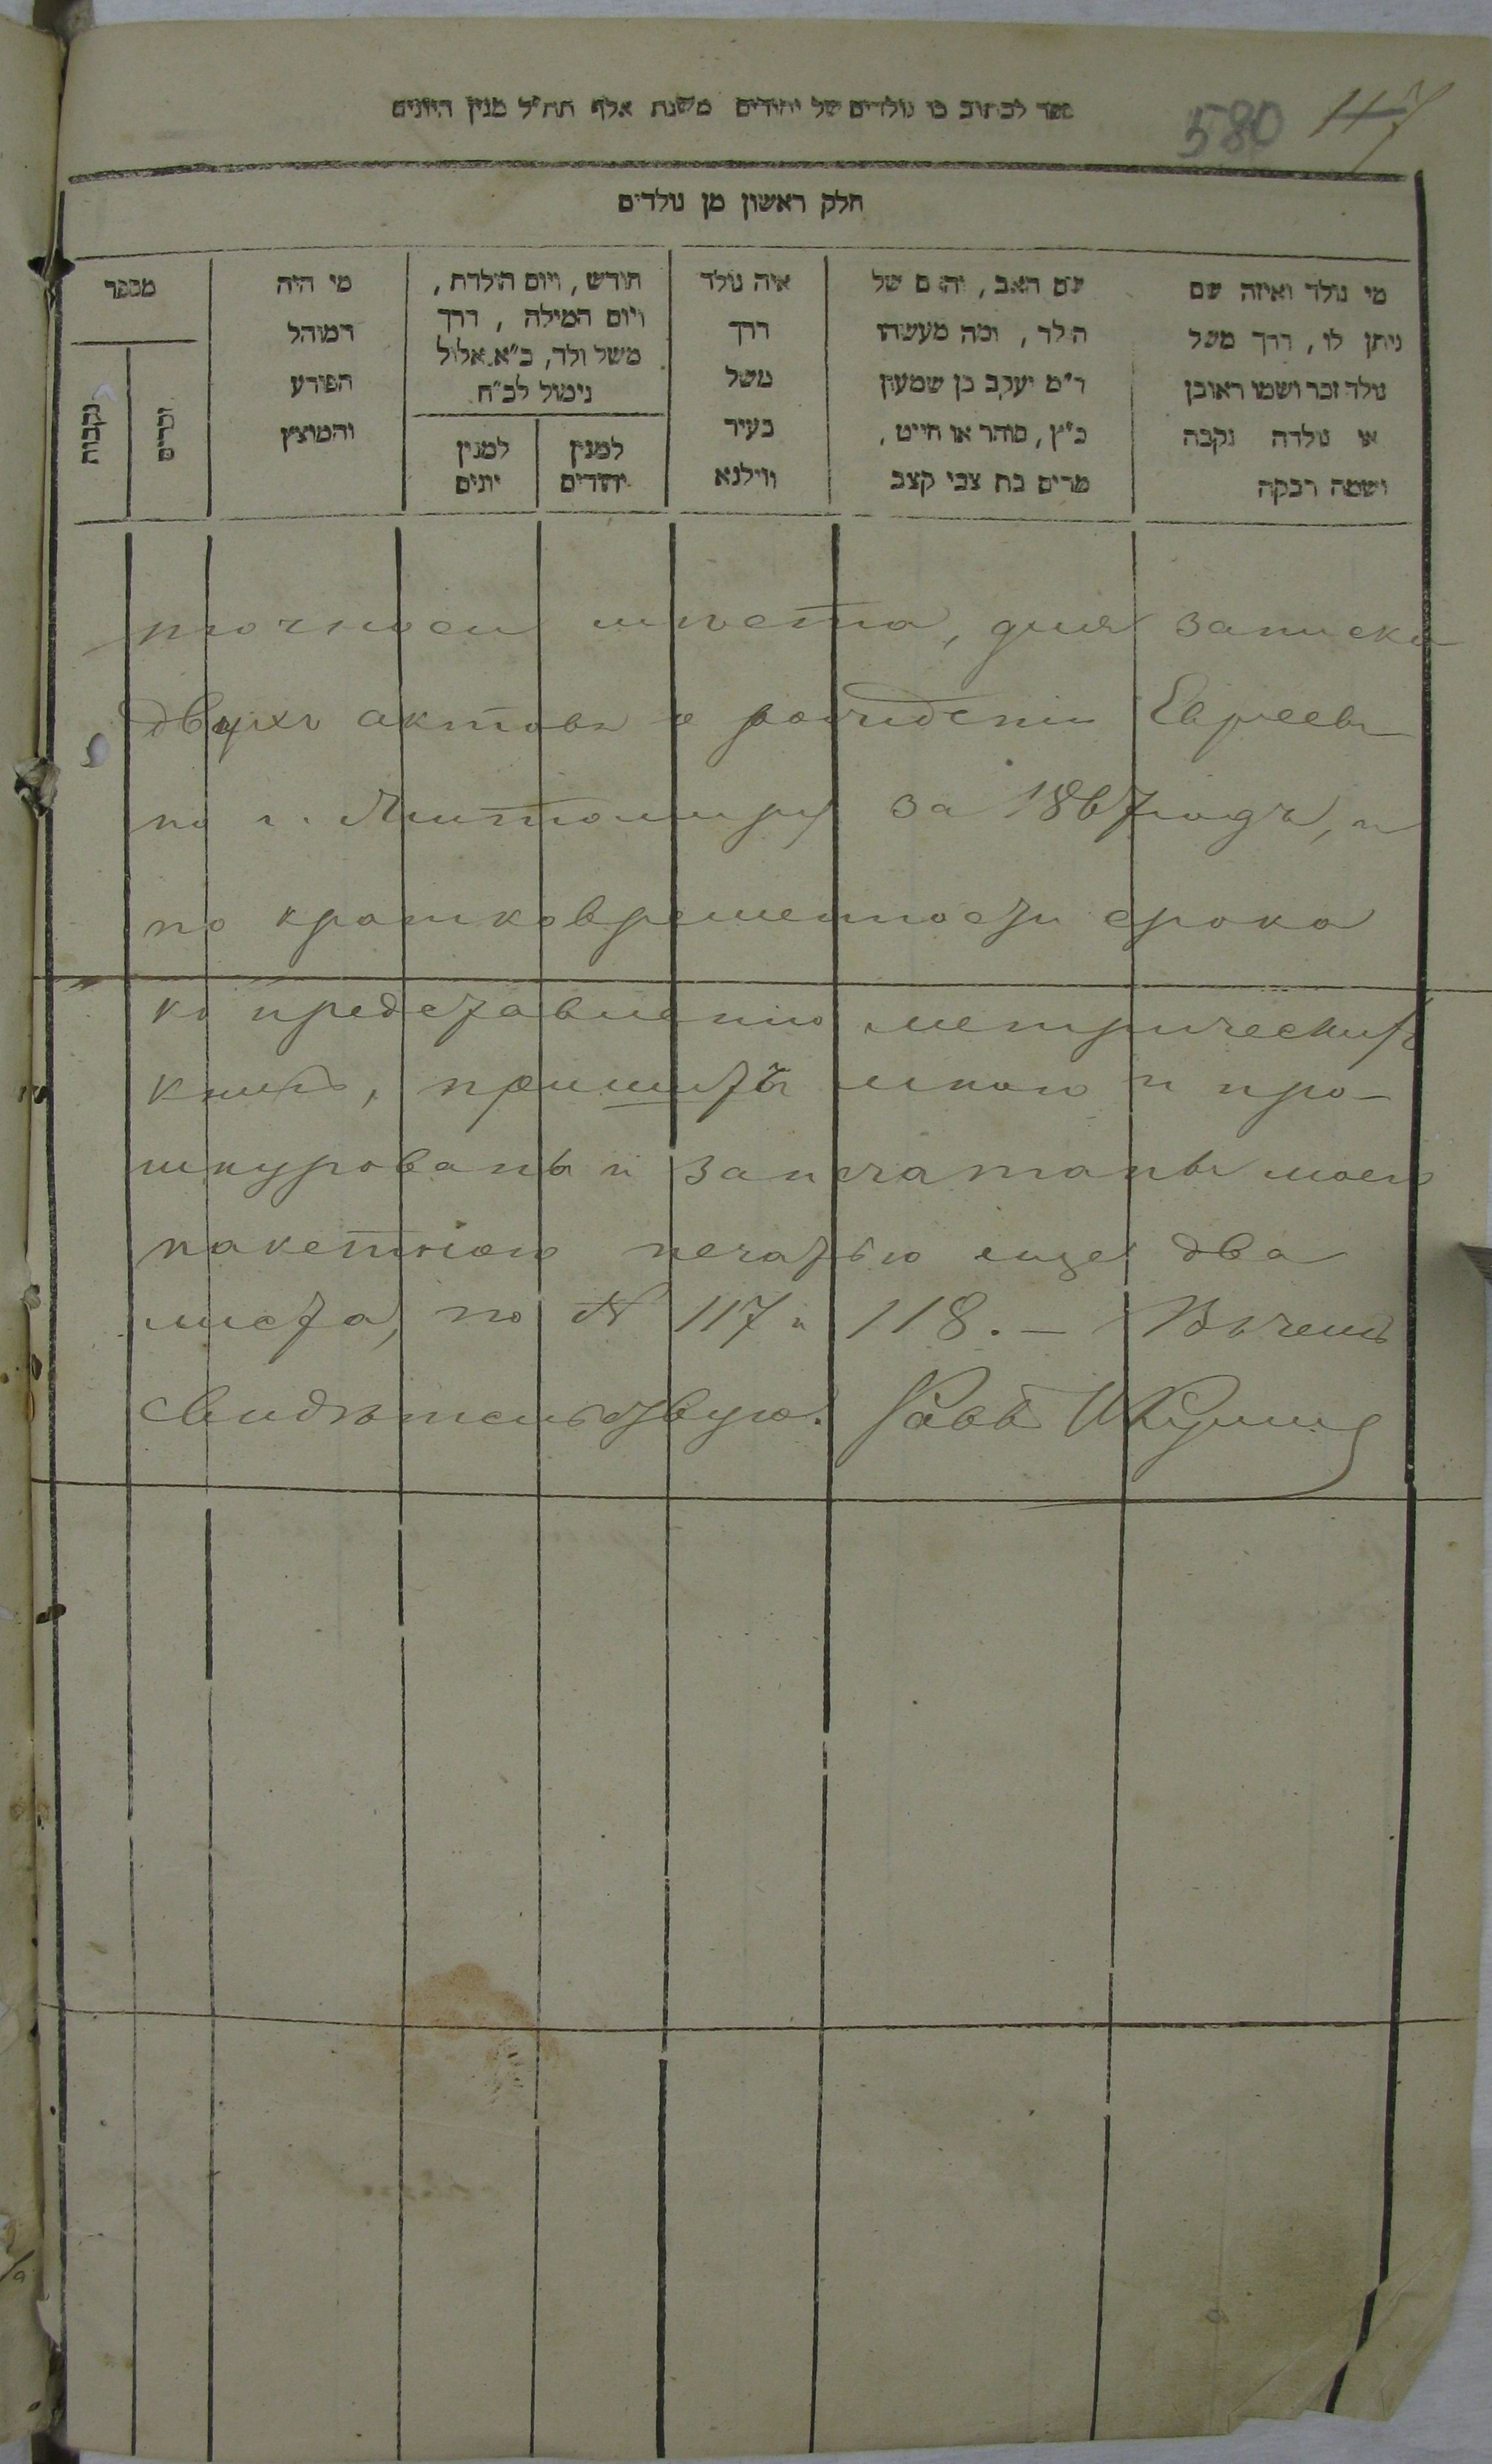 ספר לכתוב בו נולדים של יהודים משנת אלף תת״ל מנין היונים
580 117
חלק ראשון מן נולדים
מי נולד ואיזה שם
ניתן לו, דרך משל
נולד זכר ושמו ראובן
או נולדה נקבה
ושמה רבקה
שם האב, והאם של
הילד, ומה מעשהו
ר״מ יעקב בן שמעון
כ״ץ, סוחר או חייט,
מרים בת צבי קצב
איה נולד
דרך
משל
בעיר
ווילנא
חודש, ויום הולדת,
ויום המילה, דרך
משל ולד, כ״א אלול
נימול לכ״ח
למנין
יהודים
למנין
יונים
מי היה
המוהל
הפורע
והמוצץ
מספר
זכרים
נקבות
места, для записки
двухъ актовъ о рожденіи Евреевъ
по г. Житомиру за 1867 годъ, и
по кратковременности срока
къ представленію метрическихъ
книгъ, пришиты мною и про-
шнурованы и запечатаны моею
пакетною печатью еще два
листа, по № 117 и 118. — Въ чемъ
свидѣтельствую. Равв